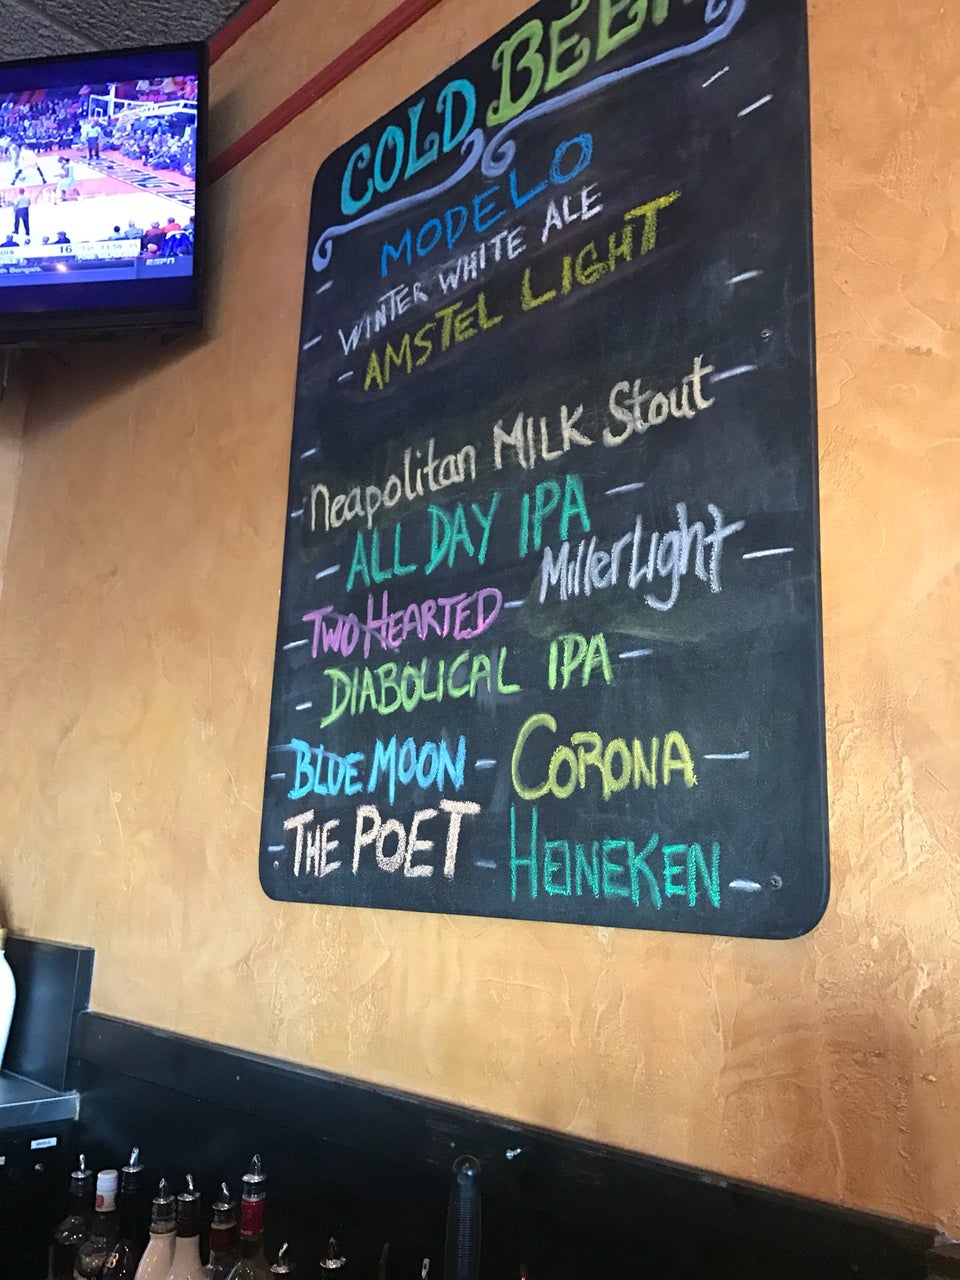 COLD BEER
MODELO
WINTER WHITE ALE
AMSTEL LIGHT
Neapolitan MILK Stout
ALL DAY IPA
Miller Light
TWO HEARTED
DIABOLICAL IPA
BLUE MOON - CORONA
THE POET - HEINEKEN
16
ESPN